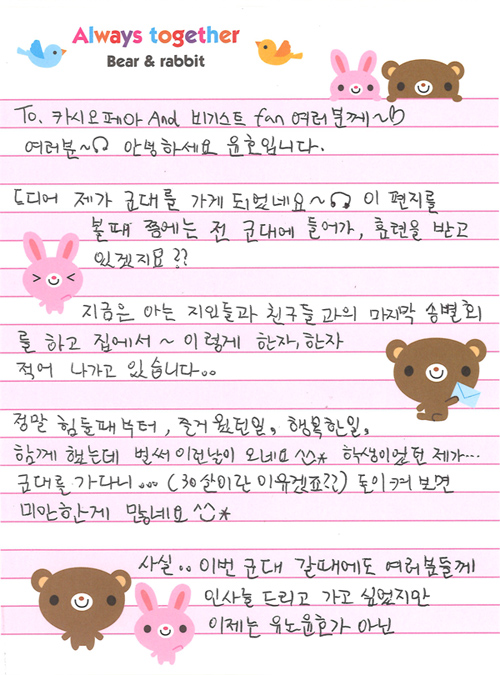 Always together
Bear & rabbit
To. 카시오페아 And 비기스트 fan 여러분께~
여러분~ 안녕하세요 윤호입니다.
드디어 제가 군대를 가게 되었네요~ 이 편지를
볼때 쯤에는 전 군대에 들어가, 훈련을 받고
있겠지요??
지금은 아는 지인들과 친구들과의 마지막 송별회
를 하고 집에서~ 이렇게 한자, 한자
적어 나가고 있습니다..
정말 힘들때부터, 즐거웠던일, 행복한일,
함께 했는데 벌써 이런날이 오네요^^* 학생이었던 제가...
군대를 가다니... (30살이란 이유겠죠??) 돌이켜 보면
미안한게 많네요^^*
사실.. 이번 군대 갈때에도 여러분들께
인사늘 드리고 가고 싶었지만
이제는 유노윤호가 아닌